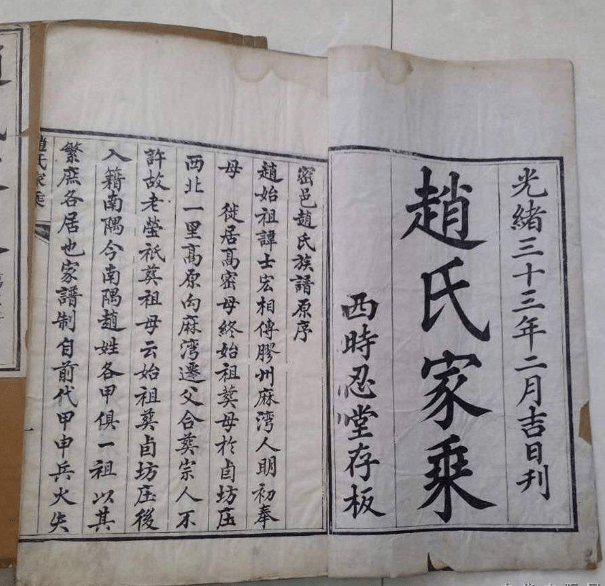 光緒三十三年二月吉日刊
趙氏家乘
西時忍堂存板
密邑趙氏族譜原序
趙始祖諱士宏相傳膠州麻灣人明初奉
母　徙居高密母終始祖葬母於卣坊庒
西北一里高原向麻灣遷父合葬宗人不
許故老塋祇葬祖母云始祖葬卣坊庒後
入籍南隅今南隅趙姓各甲俱一祖以其
繁庶各居也家譜制自前代甲申兵火失
趙氏家乘
一